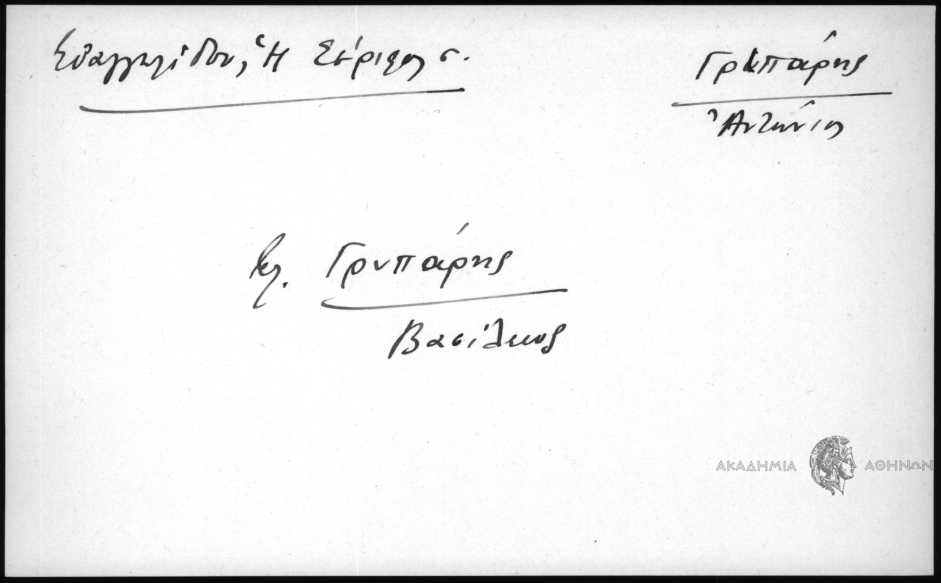 Εὐαγγελίδου, Ἡ Σέριφος σ.
Γρυπάρης
Ἀντώνιος
βλ. Γρυπάρης
Βασίλειος
ΑΚΑΔΗΜΙΑ ΑΘΗΝΩΝ